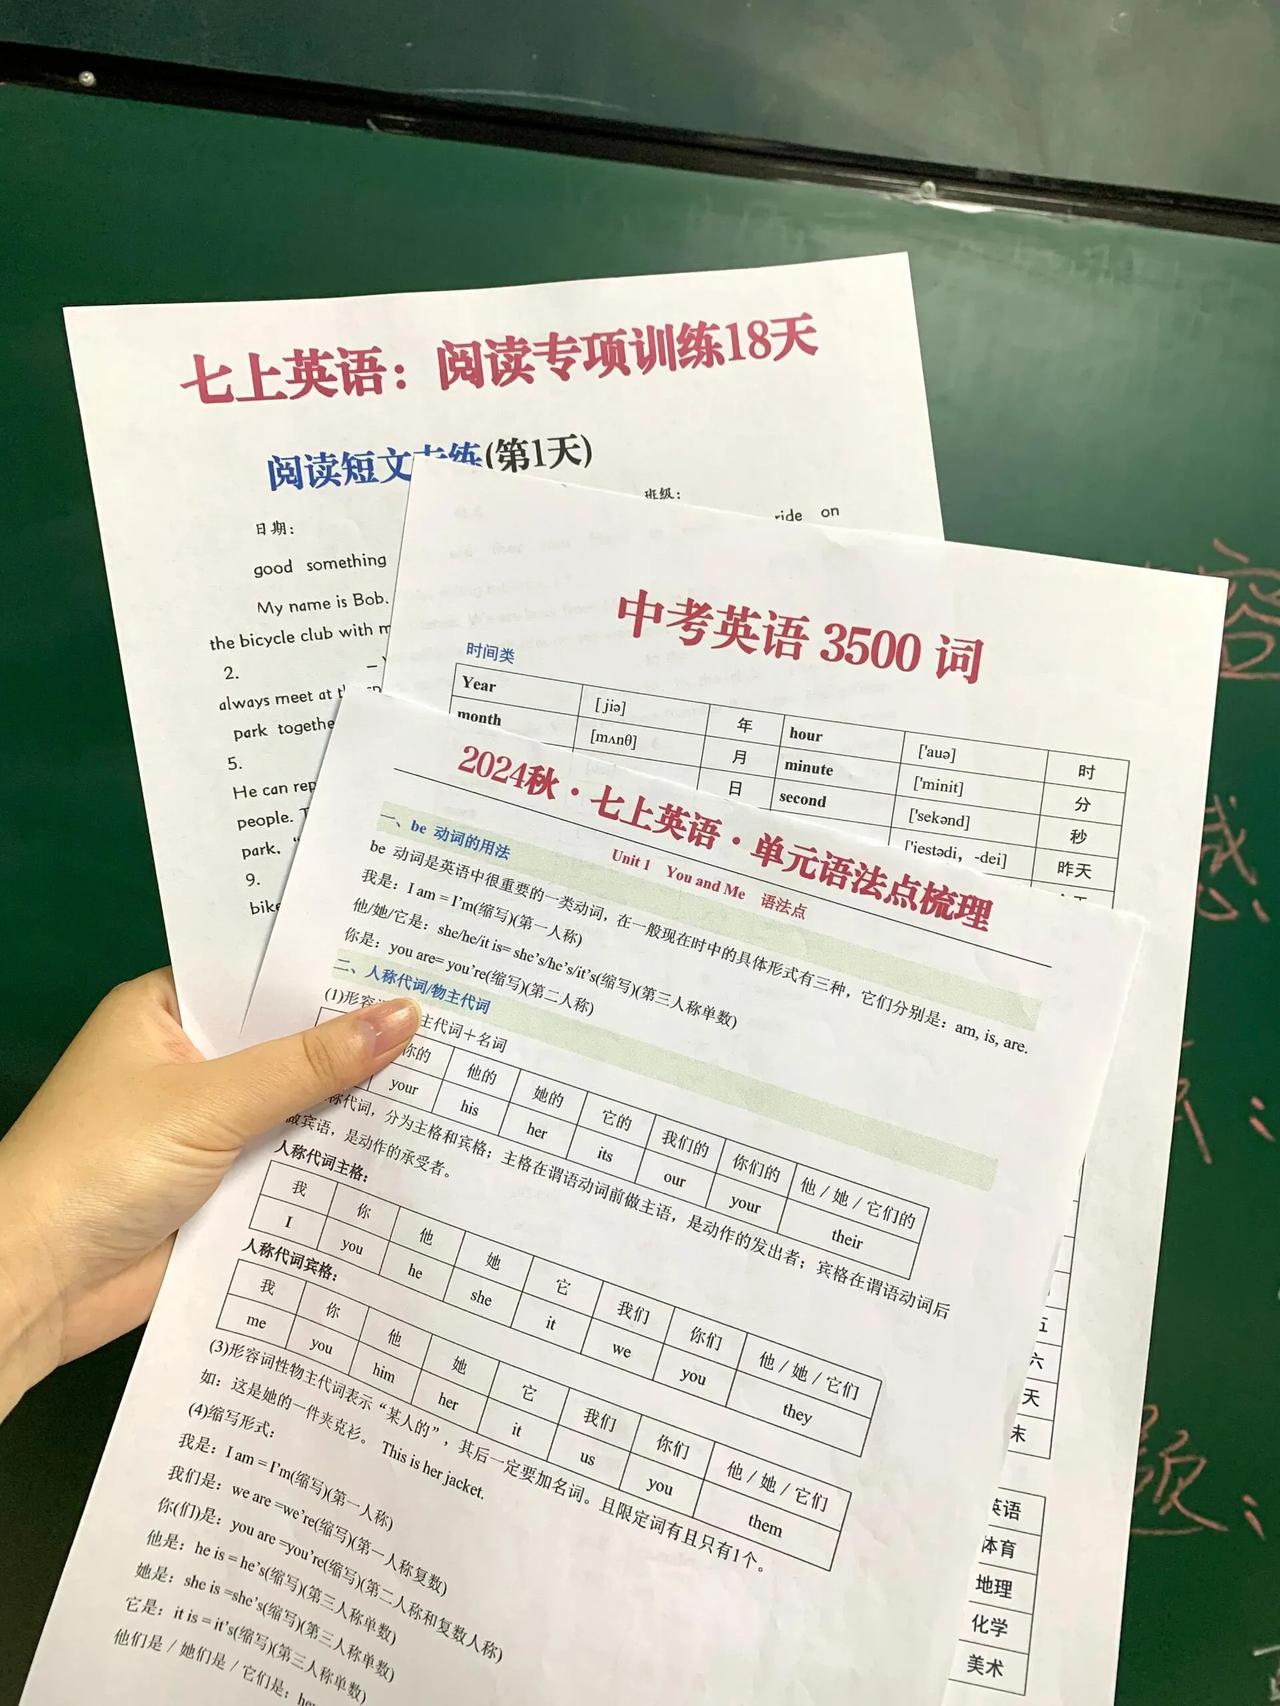 七上英语：阅读专项训练18天
阅读短文专练(第1天)
日期：
班级：
ride on
good something
My name is Bob.
the bicycle club with
2.
always meet at
park together
5.
He can
people.
park. “
9.
bike
中考英语 3500 词
时间类
Year [ jiə] 年 hour ['auə] 时
month [mʌnθ] 月 minute ['minit] 分
日 second ['sekənd] 秒
['iestədi, -dei] 昨天
五
六
天
末
英语
体育
地理
化学
美术
2024秋·七上英语·单元语法点梳理
Unit 1 You and Me 语法点
一、be 动词的用法
be 动词是英语中很重要的一类动词，在一般现在时中的具体形式有三种，它们分别是：am, is, are.
我是：I am = I’m(缩写)(第一人称)
他/她/它是：she/he/it is= she’s/he’s/it’s(缩写)(第三人称单数)
你是：you are= you’re(缩写)(第二人称)
二、人称代词/物主代词
(1)形容 主代词＋名词
你的 他的 她的 它的 我们的 你们的 他 / 她 / 它们的
your his her its our your their
称代词，分为主格和宾格；主格在谓语动词前做主语，是动作的发出者；宾格在谓语动词后
做宾语，是动作的承受者。
人称代词主格：
我 你 他 她 它 我们 你们 他 / 她 / 它们
I you he she it we you they
人称代词宾格：
我 你 他 她 它 我们 你们 他 / 她 / 它们
me you him her it us you them
(3)形容词性物主代词表示“某人的”，其后一定要加名词。且限定词有且只有1个。
如：这是她的一件夹克衫。 This is her jacket.
(4)缩写形式：
我是：I am = I’m(缩写)(第一人称)
我们是：we are =we’re(缩写)(第一人称复数)
你(们)是：you are =you’re(缩写)(第二人称和复数人称)
他是：he is = he’s(缩写)(第三人称单数)
她是：she is =she’s(缩写)(第三人称单数)
它是：it is = it’s(缩写)(第三人称单数)
他们是 / 她们是 / 它们是：